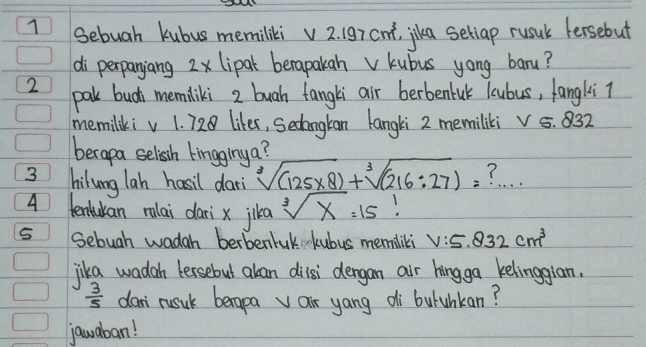 Soal
1 Sebuah kubus memiliki V 2.197 cm³, jika setiap rusuk tersebut
di perpanjang 2x lipat berapakah V kubus yang baru?
2 pak budi memiliki 2 buah tangki air berbentuk kubus, tangki 1
memiliki v 1.728 liter, Sedangkan tangki 2 memiliki V 5.832
berapa selisih tingginya?
3 hitung lah hasil dari ∛(125x8) + ∛(216:27) = ?....
4 tentukan nilai dari x jika ∛x = 15 !
5 Sebuah wadah berbentuk kubus memiliki V:5.832 cm³
jika wadah tersebut akan diisi dengan air hingga ketinggian.
3/5 dari rusuk berapa V air yang di butuhkan?
jawaban!